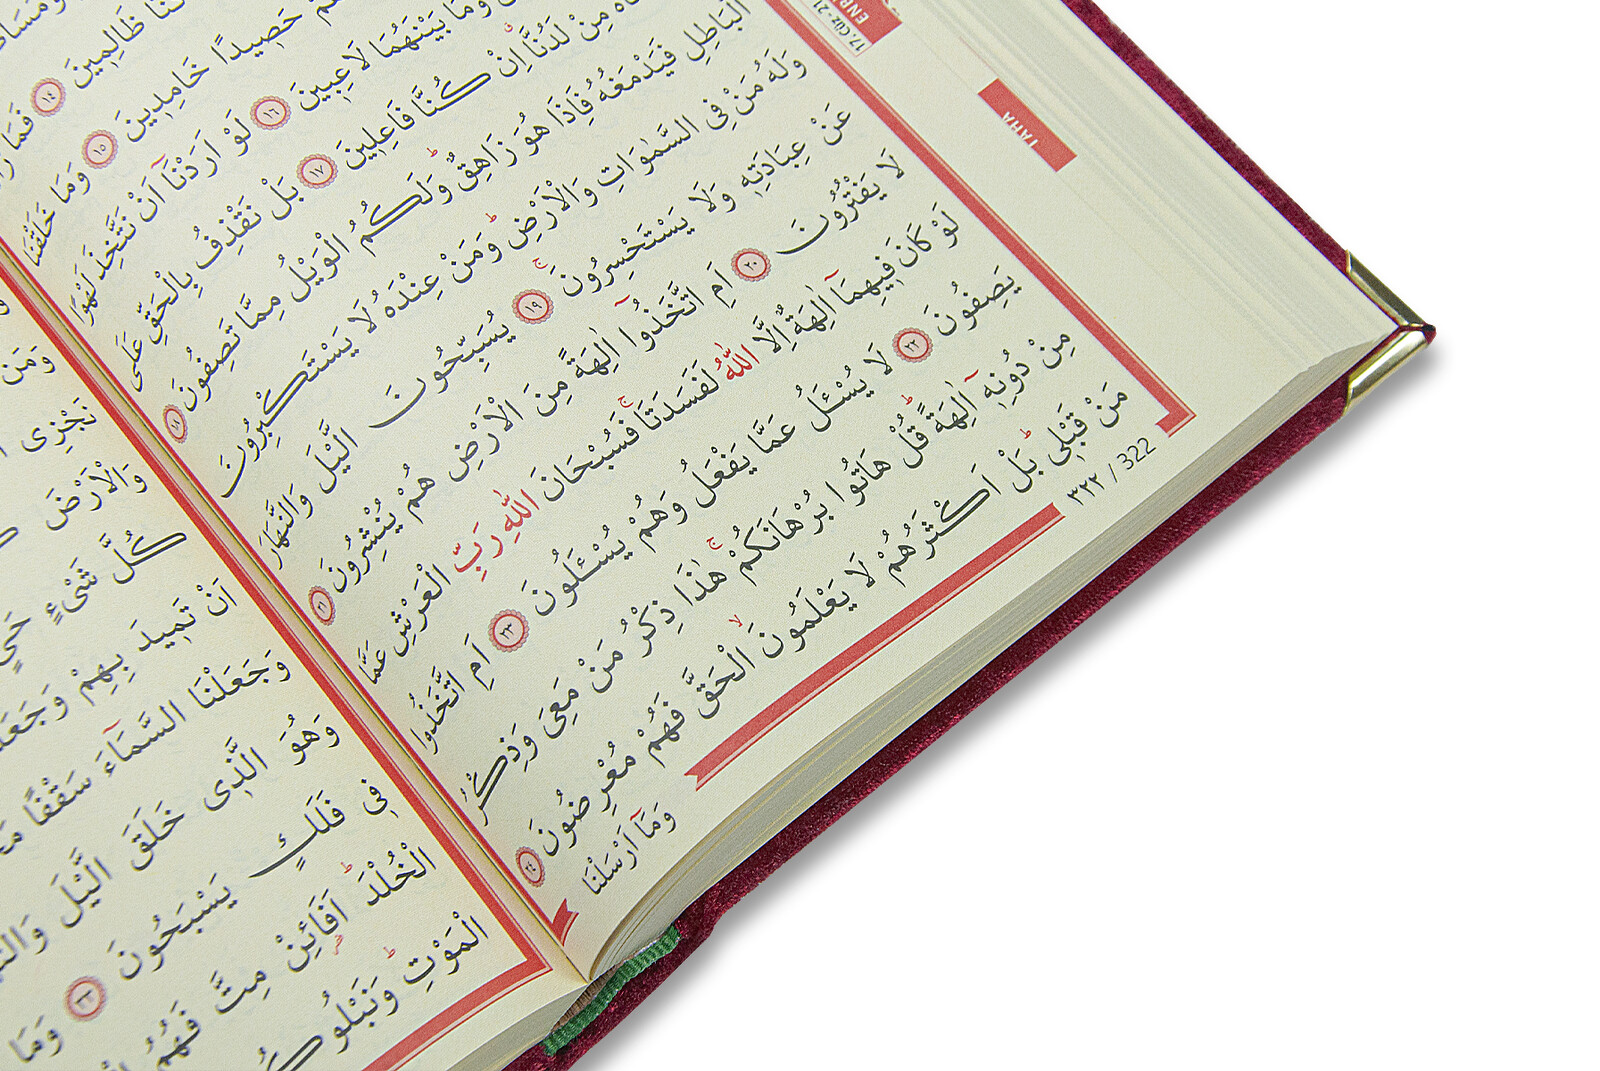 نَا ظَالِمِينَ ﴿١٤﴾ فَمَا زَ
حَصِيدًا خَامِدِينَ ﴿١٥﴾ وَمَا خَلَقْنَا
وَمَا بَيْنَهُمَا لَاعِبِينَ ﴿١٦﴾ لَوْ اَرَدْنَٓا اَنْ نَتَّخِذَ لَهْوًا
مِنْ لَدُنَّاۗ اِنْ كُنَّا فَاعِلِينَ ﴿١٧﴾ بَلْ نَقْذِفُ بِالْحَقِّ عَلَى
الْبَاطِلِ فَيَدْمَغُهُ فَاِذَا هُوَ زَاهِقٌۜ وَلَكُمُ الْوَيْلُ مِمَّا تَصِفُونَ ﴿١٨﴾
وَلَهُ مَنْ فِى السَّمٰوَاتِ وَالْاَرْضِۜ وَمَنْ عِنْدَهُ لَا يَسْتَكْبِرُونَ
عَنْ عِبَادَتِهٖ وَلَا يَسْتَحْسِرُونَۚ ﴿١٩﴾ يُسَبِّحُونَ الَّيْلَ وَالنَّهَارَ
لَا يَفْتُرُونَ ﴿٢٠﴾ اَمِ اتَّخَذُٓوا اٰلِهَةً مِنَ الْاَرْضِ هُمْ يُنْشِرُونَ ﴿٢١﴾
لَوْ كَانَ فِيهِمَٓا اٰلِهَةٌ اِلَّا اللّٰهُ لَفَسَدَتَاۚ فَسُبْحَانَ اللّٰهِ رَبِّ الْعَرْشِ عَمَّا
يَصِفُونَ ﴿٢٢﴾ لَا يُسْـَٔلُ عَمَّا يَفْعَلُ وَهُمْ يُسْـَٔلُونَ ﴿٢٣﴾ اَمِ اتَّخَذُوا
مِنْ دُونِهٖٓ اٰلِهَةًۜ قُلْ هَاتُوا بُرْهَانَكُمْۚ هٰذَا ذِكْرُ مَنْ مَعِىَ وَذِكْرُ
مَنْ قَبْلِىۜ بَلْ اَكْثَرُهُمْ لَا يَعْلَمُونَۙ الْحَقَّ فَهُمْ مُعْرِضُونَ ﴿٢٤﴾
وَمَٓا اَرْسَلْنَا
٣٢٢ / 322
17.CÜZ - 21
ENB
TAHA
وَمَنْ
نَجْزِى
وَالْاَرْضَ
كُلَّ شَىْءٍ حَىٍّ
اَنْ تَمِيدَ بِهِمْ وَجَعَلْ
وَجَعَلْنَا السَّمَٓاءَ سَقْفًا مَ
وَهُوَ الَّذِى خَلَقَ الَّيْلَ وَالنَّ
فِى فَلَكٍ يَسْبَحُونَ ﴿٣٣﴾ وَمَا
الْخُلْدَۜ اَفَا۬ئِنْ مِتَّ فَهُمُ
الْمَوْتِۜ وَنَبْلُوكُ